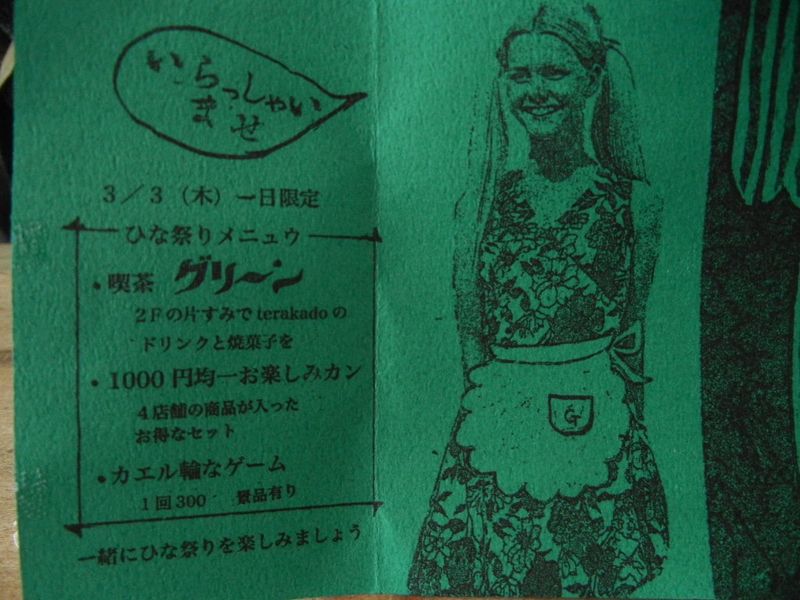 いらっしゃい
ませ
3/3(木)一日限定
ひな祭りメニュウ
・喫茶 グリーン
2Fの片すみでterakadoの
ドリンクと焼菓子を
・1000円均一お楽しみカン
4店舗の商品が入った
お得なセット
・カエル輪なゲーム
1回300 景品有り
一緒にひな祭りを楽しみましょう
G